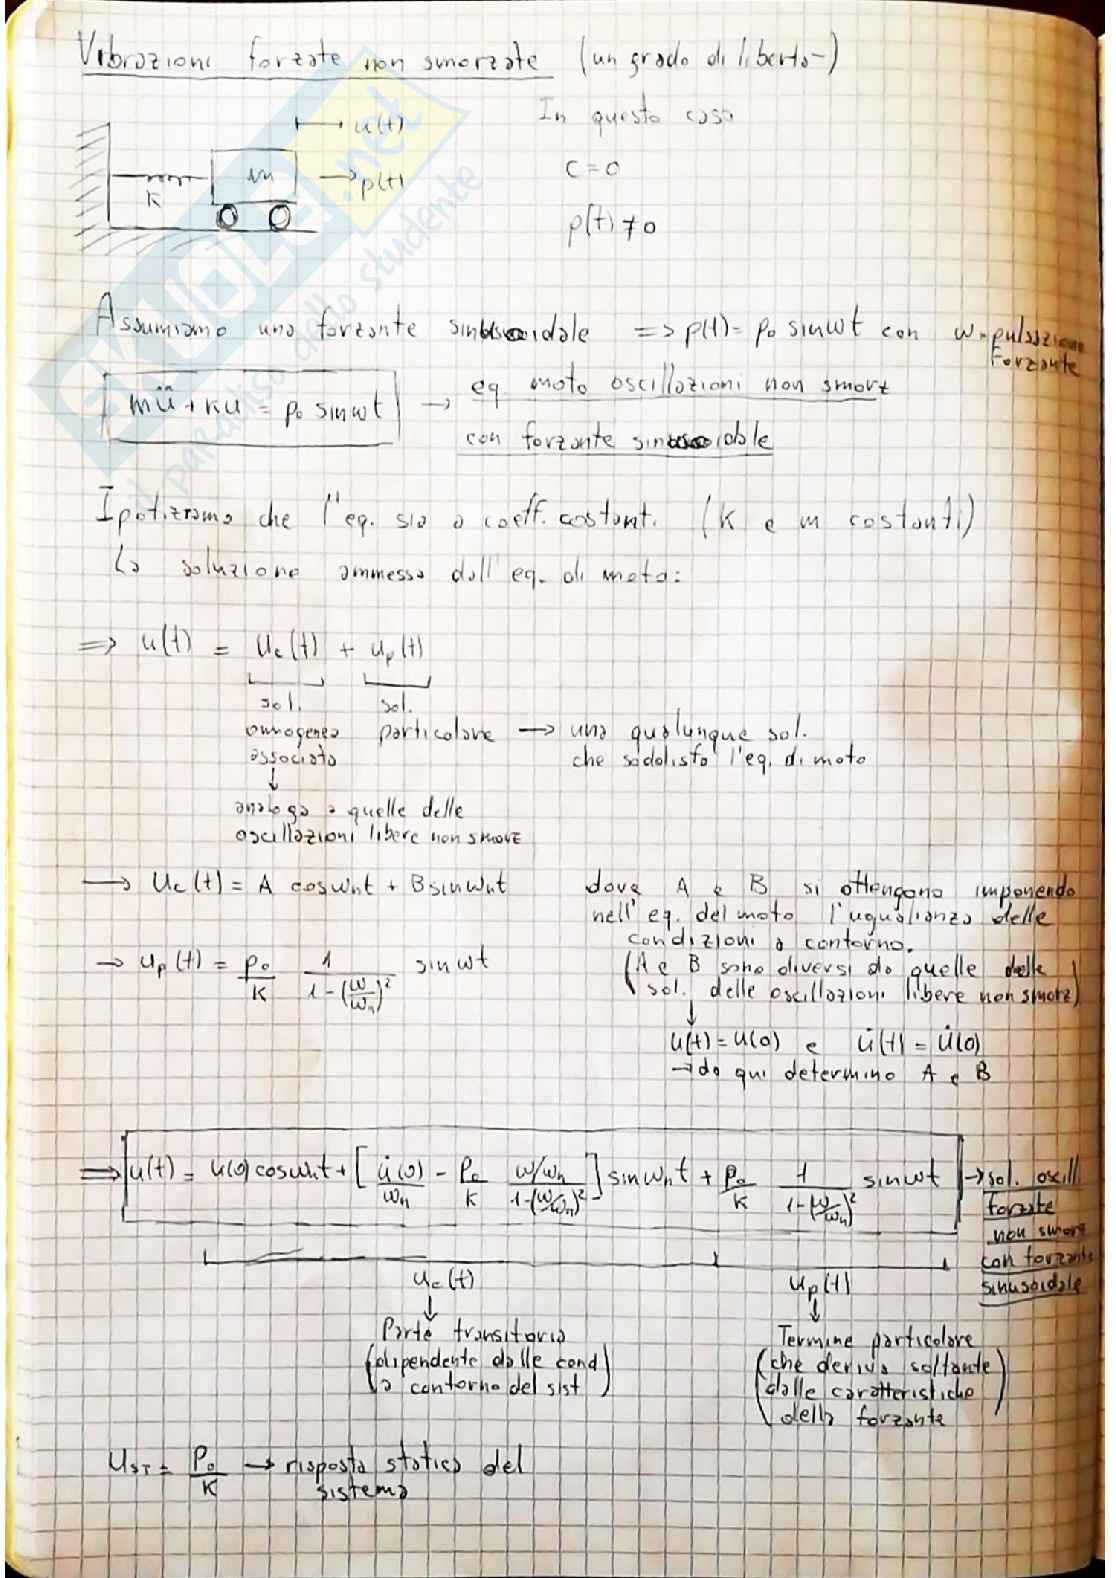 Vibrazioni forzate non smorzate (un grado di libertà)
In questo caso
u(t)
m
p(t)
K
C = 0
p(t) ≠ 0
Assumiamo una forzante sinusoidale => p(t) = p₀ sinωt con ω = pulsazione
Forzante
mü + Ku = p₀ sinωt → eq. moto oscillazioni non smorz
con forzante sinusoidale
Ipotizziamo che l'eq. sia a coeff. costanti. (K e m costanti)
La soluzione ammessa dall'eq. di moto:
=> u(t) = u_c(t) + u_p(t)
sol. sol.
omogenea particolare → una qualunque sol.
associata che soddisfa l'eq. di moto
↓
analoga a quelle delle
oscillazioni libere non smorz
→ u_c(t) = A cosω_n t + B sinω_n t dove A e B si ottengono imponendo
nell'eq. del moto l'uguaglianza delle
condizioni a contorno.
→ u_p(t) = p₀/K 1/(1-(ω/ω_n)²) sinωt
(A e B sono diversi da quelle delle
sol. delle oscillazioni libere non smorz)
↓
u(t) = u(0) e u̇(t) = u̇(0)
→ da qui determino A e B
=> u(t) = u(0) cosω_n t + [u̇(0)/ω_n - p₀/K (ω/ω_n)/(1-(ω/ω_n)²)] sinω_n t + p₀/K 1/(1-(ω/ω_n)²) sinωt → sol. oscill
forzate
non smorz
con forzante
sinusoidale
u_c(t) u_p(t)
↓ ↓
Parte transitoria
(dipendente dalle cond
a contorno del sist)
Termine particolare
(che deriva soltante
dalle caratteristiche
della forzante
u_ST = p₀/K → risposta statica del
sistema
SKUOLA.net
il paradiso dello studente